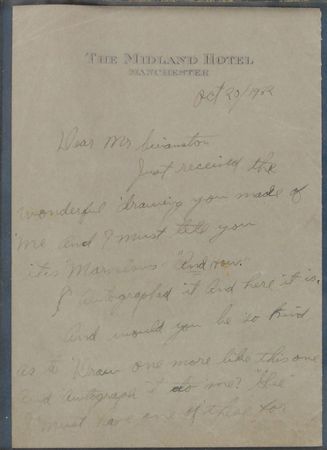 THE MIDLAND HOTEL
MANCHESTER
Oct 29/1902
Dear Mr
Just received the
wonderful drawing you made of
me and I must tell you
it is Marvelous and now.
I Autographed it and here it is.
And would you be so kind
as to Draw one more like this one
and autograph it to me?
I must have one of these for